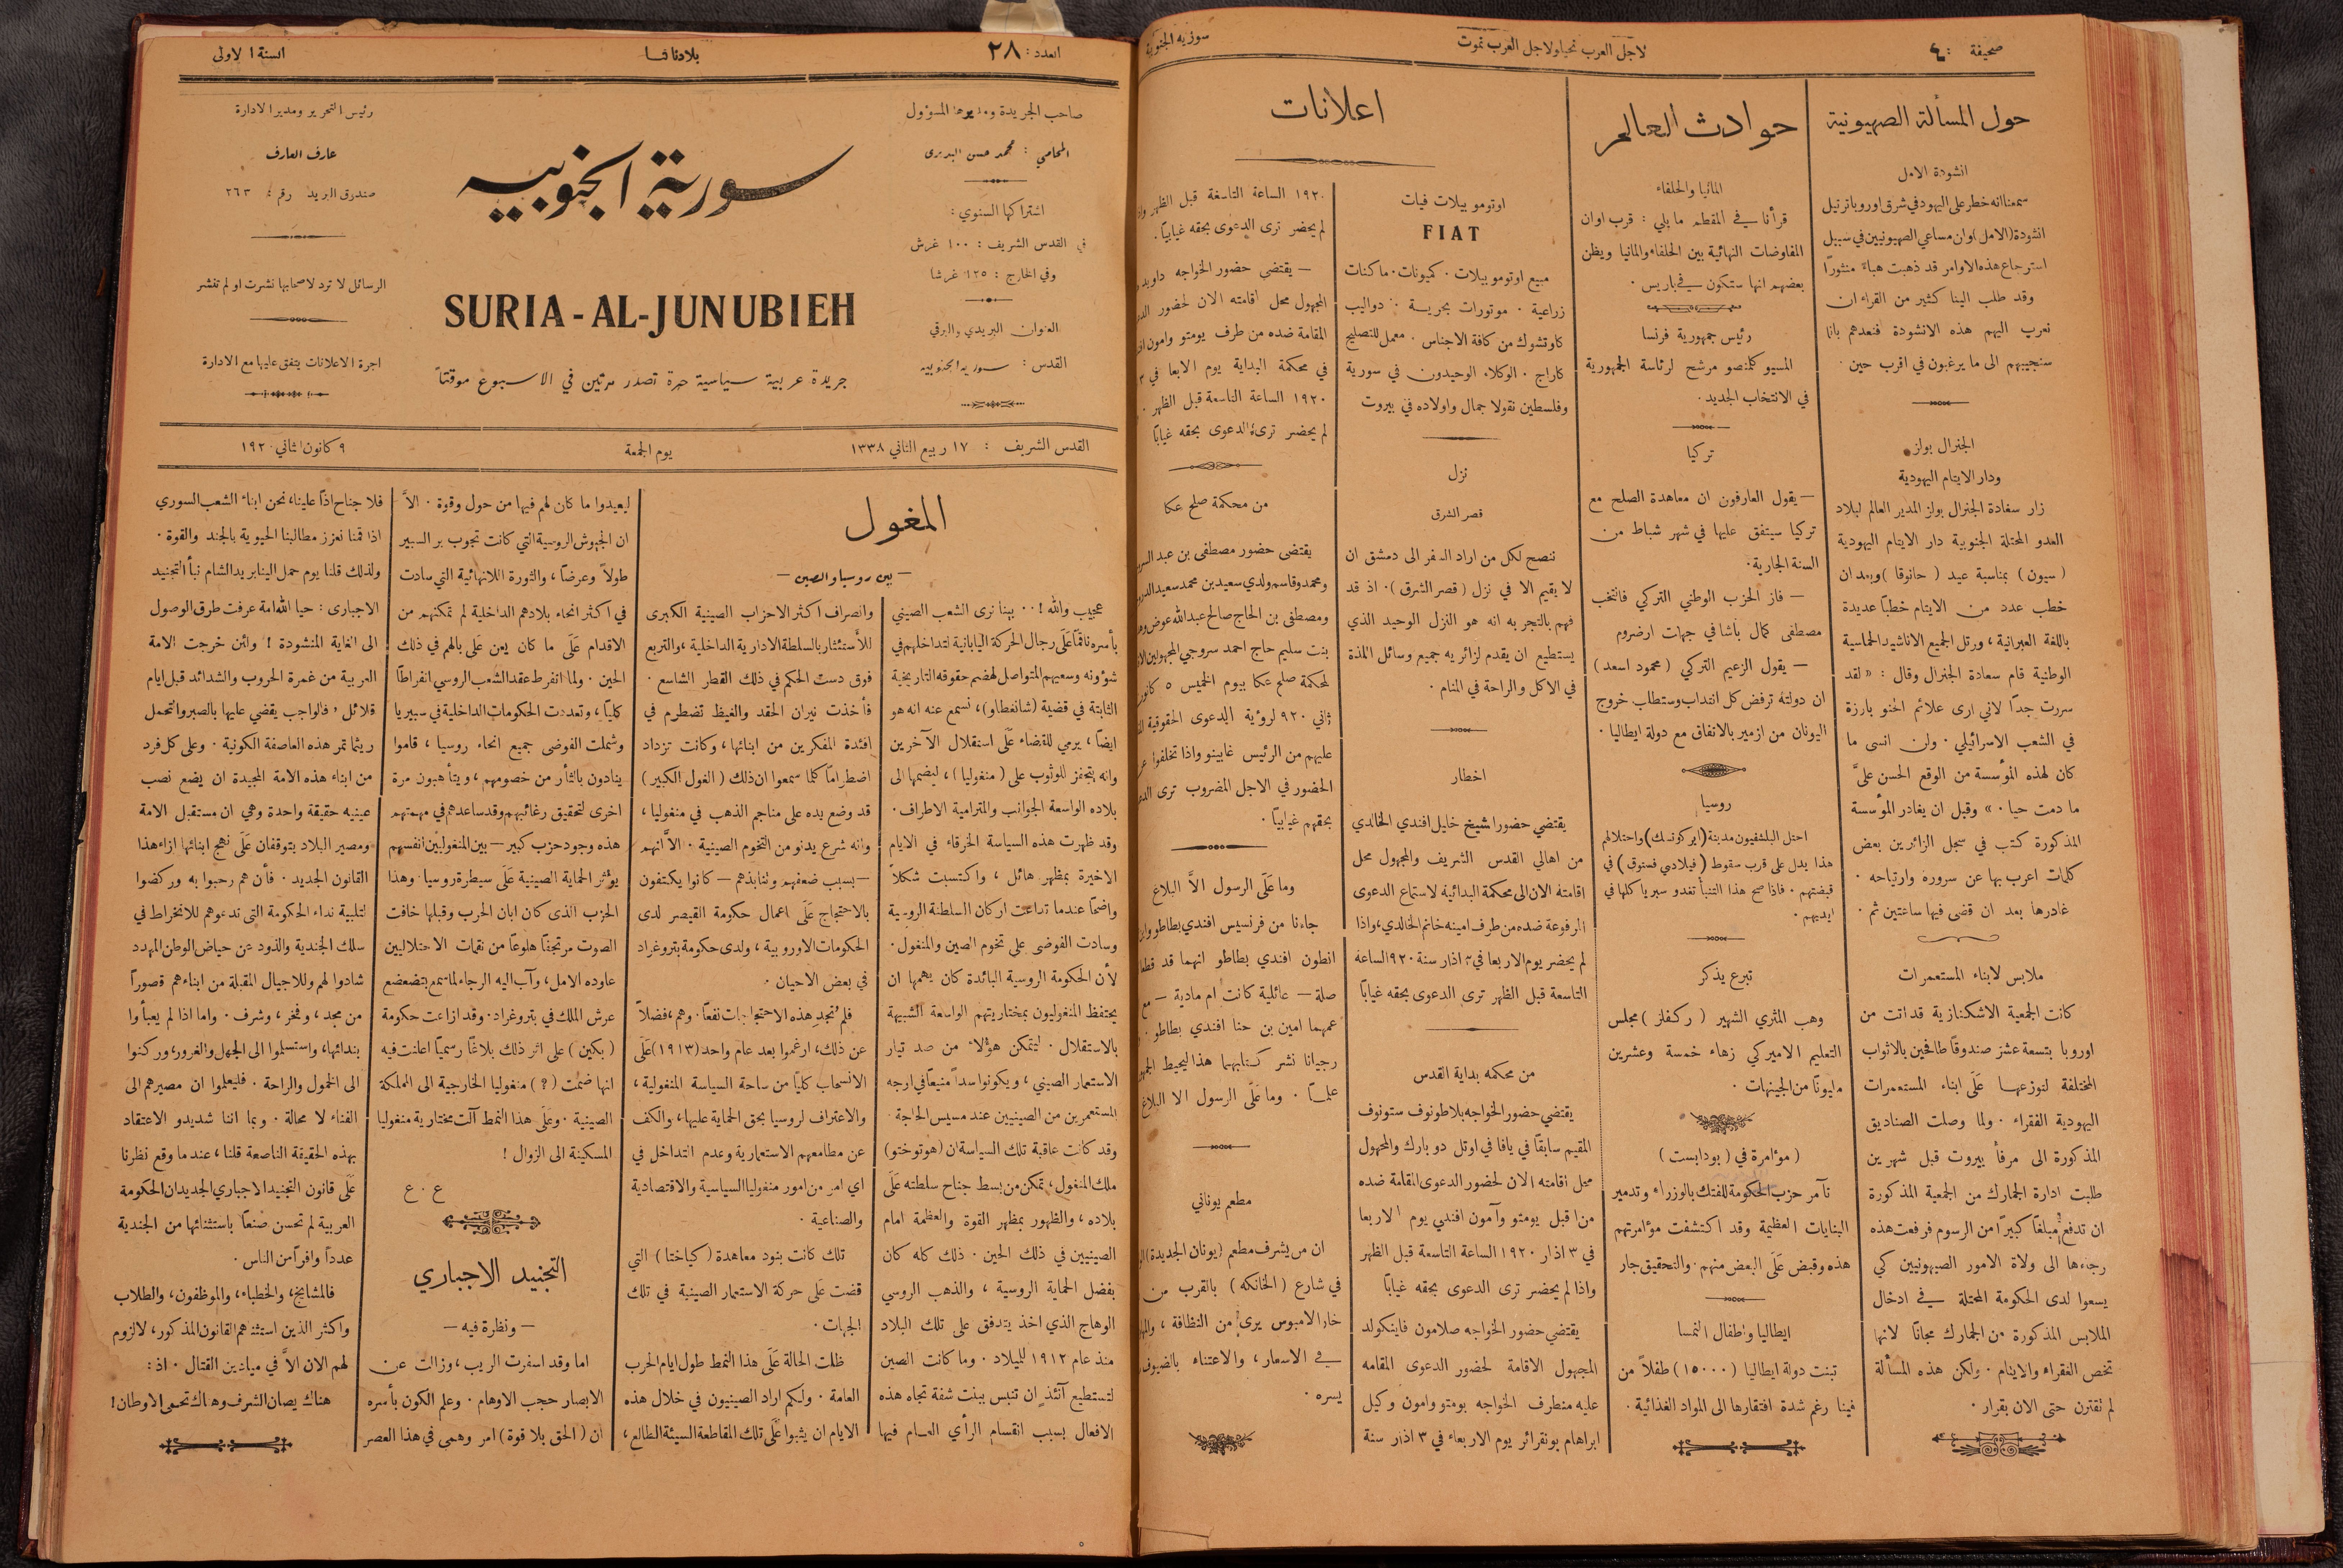 صحيفة : ٤
لاجل العرب نحيا ولاجل العرب نموت
سورية الجنوبية
حول المسألة الصهيونية
انشودة الامل
سمعنا انه خطر على اليهود في شرق اوروبا ترتيل
انشودة (الامل) وان مساعي الصهيونيين في سبيل
استرجاع هذه الاوامر قد ذهبت هباءً منثورًا
وقد طلب الينا كثير من القراء ان
نعرب اليهم هذه الانشودة فنعدهم باننا
سنجيبهم الى ما يرغبون في اقرب حين .
الجنرال بولز
ودار الايتام اليهودية
زار سعادة الجنرال بولز المدير العام لبلاد
العدو المحتلة الجنوبية دار الايتام اليهودية
(سيون) بمناسبة عيد (حانوقا) وبعد ان
خطب عدد من الايتام خطبًا عديدة
باللغة العبرانية، ورتل الجميع الاناشيد الحماسية
الوطنية قام سعادة الجنرال وقال : « لقد
سررت جدًا لاني ارى علائم الحنو بارزة
في الشعب الاسرائيلي . ولن انسى ما
كان لهذه المؤسسة من الوقع الحسن عليَّ
ما دمت حيا . » وقبل ان يغادر المؤسسة
المذكورة كتب في سجل الزائرين بعض
كلمات اعرب بها عن سروره وارتياحه .
غادرها بعد ان قضى فيها ساعتين ثم .
ملابس لابناء المستعمرات
كانت الجمعية الاشكنازية قد اتت من
اوروبا بتسعة عشر صندوقًا طافحين بالاثواب
المختلفة لتوزعها عَلَى ابناء المستعمرات
اليهودية الفقراء . ولما وصلت الصناديق
المذكورة الى مرفأ بيروت قبل شهرين
طلبت ادارة الجمارك من الجمعية المذكورة
ان تدفع مبلغًا كبيرًا من الرسوم فرفعت هذه
رجاءها الى ولاة الامور الصهيونيين كي
يسعوا لدى الحكومة المحتلة في ادخال
الملابس المذكورة من الجمارك مجانًا لانها
تخص الفقراء والايتام . ولكن هذه المسألة
لم تقترن حتى الان بقرار .
حوادث العالم
المانيا والحلفاء
قرأنا في المقطم ما يلي : قرب اوان
المفاوضات النهائية بين الحلفاء والمانيا ويظن
بعضهم انها ستكون في باريس .
رئيس جمهورية فرنسا
المسيو كلمنصو مرشح لرئاسة الجمهورية
في الانتخاب الجديد .
تركيا
— يقول العارفون ان معاهدة الصلح مع
تركيا سيتفق عليها في شهر شباط من
السنة الجارية .
— فاز الحزب الوطني التركي فانتخب
مصطفى كمال باشا في جهات ارضروم
— يقول الزعيم التركي (محمود اسعد)
ان دولته ترفض كل انتداب وستطلب خروج
اليونان من ازمير بالاتفاق مع دولة ايطاليا .
روسيا
احتل البلشفيون مدينة (ايركوتسك) واحتلالهم
هذا يدل على قرب سقوط (فيلادي فستوق) في
قبضتهم . فاذا صح هذا التنبأ تغدو سبريا كلها في
ايديهم .
تبرع يذكر
وهب المثري الشهير (ركفلر) مجلس
التعليم الاميركي زهاء خمسة وعشرين
مليونًا من الجينهات .
(مؤامرة في (بودابست)
تآمر حزب الحكومة للفتك بالوزراء وتدمير
البنايات العظيمة وقد اكتشفت مؤامرتهم
هذه وقبض عَلَى البعض منهم . والتحقيق جار
ايطاليا واطفال النمسا
تبنت دولة ايطاليا (١٥٠٠٠) طفلاً من
فينا رغم شدة افتقارها الى المواد الغذائية .
اعلانات
اوتومو بيلات فيات
FIAT
مبيع اوتوموبيلات . كميونات . ماكنات
زراعية . موتورات بحرية . دواليب
كاوتشوك من كافة الاجناس . معمل للتصليح
كاراج . الوكلاء الوحيدون في سورية
وفلسطين نقولا جمال واولاده في بيروت
نزل
قصر الشرق
ننصح لكل من اراد السفر الى دمشق ان
لا يقيم الا في نزل (قصر الشرق). اذ قد
فهم بالتجربه انه هو النزل الوحيد الذي
يستطيع ان يقدم لزائريه جميع وسائل المذة
في الاكل والراحة في المنام .
اخطار
يقتضي حضور الشيخ خليل افندي الخالدي
من اهالي القدس الشريف والمجهول محل
اقامته الان الى محكمة البدائية لاستماع الدعوى
المرفوعة ضده من طرف امينه خانم الخالدي، واذا
لم يحضر يوم الاربعا في ٣ اذار سنة ٩٢٠ الساعة
التاسعة قبل الظهر ترى الدعوى بحقه غيابًا
من محكمه بداية القدس
يقتضي حضور الخواجه بلاطونوف ستونوف
المقيم سابقًا في يافا في اوتل دو بارك والمجهول
محل اقامته الان لحضور الدعوى المقامة ضده
من قبل يومتو وآمون افندي يوم الاربعا
في ٣ اذار ١٩٢٠ الساعة التاسعة قبل الظهر
واذا لم يحضر ترى الدعوى بحقه غيابًا
يقتضي حضور الخواجه صلامون فاينكولد
المجهول الاقامة لحضور الدعوى المقامه
عليه منطرف الخواجه يومتو وامون وكيل
ابراهام بونقرائر يوم الاربعاء في ٣ اذار سنة
١٩٢٠ الساعة التاسعة قبل الظهر
لم يحضر ترى الدعوى بحقه غيابيًا .
— يقتضي حضور الخواجه داويد
المجهول محل اقامته الان لحضور
المقامة ضده من طرف يومتو وامون
في محكمة البداية يوم الابعا في ٣
١٩٢٠ الساعة التاسعة قبل الظهر .
لم يحضر ترى الدعوى بحقه غيابًا
من محكمة صلح عكا
يقتضى حضور مصطفى بن عبد
ومحمد وقاسم ولدي سعيد بن محمد سعيد
ومصطفى بن الحاج صالح عبد الله عوض
بنت سليم حاج احمد سروجي المجهولين
لمحكمة صلح عكا بيوم الخميس ٥ كانون
ثاني ٩٢٠ لروئية الدعوى الحقوقية
عليهم من الرئيس غابينو واذا تخلفوا عن
الحضور في الاجل المضروب ترى
بحقهم غيابيًا .
وما عَلَى الرسول الاَّ البلاغ
جاءنا من فرنسيس افندي بطاطو
انطون افندي بطاطو انهما قد قطعا
صلة — عائلية كانت ام مادية — مع
عمهما امين بن حنا افندي بطاطو .
رجيانا نشر كتابهما هذا ليحيط
علمًا . وما عَلَى الرسول الا البلاغ
مطعم يوناني
ان من يشرف مطعم (يونان الجديدة)
في شارع (الخانكه) بالقرب من
خار الامبوس يرى من النظافة ،
في الاسعار، والاعتناء بالضيوف
يسره .
العدد : ٢٨
بلادنا لنا
السنة الاولى
صاحب الجريدة ومديرها المسؤول
المحامي : محمد حسن البديري
اشتراكها السنوي :
في القدس الشريف : ١٠٠ غرش
وفي الخارج : ١٢٥ غرشا
العنوان البريدي والبرقي
القدس : سوريه الجنوبيه
سورية الجنوبيه
SURIA-AL-JUNUBIEH
جريدة عربية سياسية حرة تصدر مرتين في الاسبوع موقتاً
رئيس التحرير ومدير الادارة
عارف العارف
صندوق البريد رقم : ٢٦٣
الرسائل لا ترد لاصحابها نشرت او لم تنشر
اجرة الاعلانات يتفق عليها مع الادارة
القدس الشريف : ١٧ ربيع الثاني ١٣٣٨
يوم الجمعة
٩ كانون الثاني ١٩٢٠
المغول
— بين روسيا والصين —
عجيب والله !.. بينا نرى الشعب الصيني
بأسره ناقمًا عَلَى رجال الحركة اليابانية لتداخلهم في
شؤونه وسعيهم المتواصل لهضم حقوقه التاريخية
الثابتة في قضية (شانغطاو)، نسمع عنه انه هو
ايضًا، يرمي للقضاء عَلَى استقلال الآخرين
وانه يتحفز للوثوب على (منغوليا)، ليضمها الى
بلاده الواسعة الجوانب والمترامية الاطراف .
وقد ظهرت هذه السياسة الخرقاء في الايام
الاخيرة بمظهر هائل ، واكتسبت شكلاً
واضحًا عندما تداعت اركان السلطنة الروسية
وسادت الفوضى على تخوم الصين والمنغول .
لأن الحكومة الروسية البائدة كان يهمها ان
يحتفظ المنغوليون بمختاريتهم الواسعة الشبيهة
بالاستقلال . ليتمكن هؤلاء من صد تيار
الاستعمار الصيني ، ويكونوا سداً منيعًا في اوجه
المستعمرين من الصينيين عند مسيس الحاجة .
وقد كانت عاقبة تلك السياسة ان (هوتوختو)
ملك المنغول، تمكن من بسط جناح سلطته عَلَى
بلاده، والظهور بمظهر القوة والعظمة امام
الصينيين في ذلك الحين . ذلك كله كان
بفضل الحماية الروسية ، والذهب الروسي
الوهاج الذي اخذ يتدفق على تلك البلاد
منذ عام ١٩١٢ للميلاد . وما كانت الصين
لتستطيع آنئذٍ ان تنبس ببنت شفة تجاه هذه
الافعال بسبب انقسام الرأي العام فيها
وانصراف اكثر الاحزاب الصينية الكبرى
للأستئثار بالسلطة الادارية الداخلية ، والتربع
فوق دست الحكم في ذلك القطر الشاسع .
فأخذت نيران الحقد والغيظ تضطرم في
افئدة المفكرين من ابنائها، وكانت تزداد
اضطرامًا كلما سمعوا ان ذلك (الغول الكبير)
قد وضع يده على مناجم الذهب في منغوليا ،
وانه شرع يدنو من التخوم الصينية . الاَّ انهم
— بسبب ضعفهم وتنابذهم — كانوا يكتفون
بالاحتجاج عَلَى اعمال حكومة القيصر لدى
الحكومات الاوروبية ، ولدى حكومة بتروغراد
في بعض الاحيان .
فلم تُجدِ هذه الاحتجاجات نفعًا . وهم ، فضلاً
عن ذلك، ارغموا بعد عام واحد (١٩١٣) عَلَى
الانسحاب كليًا من ساحة السياسة المنغولية ،
والاعتراف لروسيا بحق الحماية عليها، والكف
عن مطامعهم الاستعمارية وعدم التداخل في
اي امر من امور منغوليا السياسية والاقتصادية
والصناعية .
تلك كانت بنود معاهدة (كياختا) التي
قضت عَلَى حركة الاستعمار الصينية في تلك
الجهات .
ظلت الحالة عَلَى هذا النمط طول ايام الحرب
العامة . ولكم اراد الصينيون في خلال هذه
الايام ان يثبوا عَلَى تلك المقاطعة السيئة الطالع ،
ليعيدوا ما كان لهم فيها من حول وقوة . الاَّ
ان الجيوش الروسية التي كانت تجوب بر السبير
طولاً وعرضًا، والثورة اللانهائية التي سادت
في اكثر انحاء بلادهم الداخلية لم تمكنهم من
الاقدام عَلَى ما كان يعن عَلَى بالهم في ذلك
الحين . ولما انفرط عقد الشعب الروسي انفراطًا
كليًا ، وتعددت الحكومات الداخلية في سبيريا
وشملت الفوضى جميع انحاء روسيا ، قاموا
ينادون بالثأر من خصومهم ، ويتأهبون مرة
اخرى لتحقيق رغائبهم وقد ساعدهم في مهمتهم
هذه وجود حزب كبير — بين المنغوليين انفسهم
يؤثر الحماية الصينية عَلَى سيطرة روسيا . وهذا
الحزب الذي كان ابان الحرب وقبلها خافت
الصوت مرتجفًا هلوعًا من نقمات الاحتلاليين
عاوده الامل ، وآب اليه الرجاء لما سمع بتضعضع
عرش الملك في بتروغراد . وقد اذاعت حكومة
(بكين) على اثر ذلك بلاغًا رسميًا اعلنت فيه
انها ضمت (؟) منغوليا الخارجية الى المملكة
الصينية . وعَلَى هذا النمط آلت مختارية منغوليا
المسكينة الى الزوال !
ع . ع
التجنيد الاجباري
— ونظرة فيه —
اما وقد اسفرت الريب ، وزالت عن
الابصار حجب الاوهام . وعلم الكون بأسره
ان (الحق بلا قوة) امر وهمي في هذا العصر
فلا جناح اذًا علينا، نحن ابناء الشعب السوري
اذا قمنا نعزز مطالبنا الحيوية بالجند والقوة .
ولذلك قلنا يوم حمل الينا بريد الشام نبأ التجنيد
الاجباري : حيا الله امة عرفت طرق الوصول
الى الغاية المنشودة ! ولئن خرجت الامة
العربية من غمرة الحروب والشدائد قبل ايام
قلائل ، فالواجب يقضي عليها بالصبر والتحمل
ريثما تمر هذه العاصفة الكونية . وعلى كل فرد
من ابناء هذه الامة المجيدة ان يضع نصب
عينيه حقيقة واحدة وهي ان مستقبل الامة
ومصير البلاد يتوقفان عَلَى نهج ابنائها ازاء هذا
القانون الجديد . فأن هم رحبوا به وركضوا
لتلبية نداء الحكومة التي تدعوهم للانخراط في
سلك الجندية والذود عن حياض الوطن المهدد
شادوا لهم وللاجيال المقبلة من ابناءهم قصورًا
من مجد ، وفخر ، وشرف . واما اذا لم يعبأوا
بندائها، واستسلموا الى الجهل والغرور، وركنوا
الى الخمول والراحة . فليعلموا ان مصيرهم الى
الفناء لا محالة . وبما اننا شديدو الاعتقاد
بهذه الحقيقة الناصعة قلنا، عندما وقع نظرنا
عَلَى قانون التجنيد الاجباري الجديد ان الحكومة
العربية لم تحسن صنعًا باستثنائها من الجندية
عدداً وافراً من الناس .
فالمشايخ ، والخطباء ، والموظفون ، والطلاب
واكثر الذين استثناهم القانون المذكور، لا لزوم
لهم الان الاَّ في ميادين القتال . اذ :
هناك يصان الشرف وهناك تحمى الاوطان !